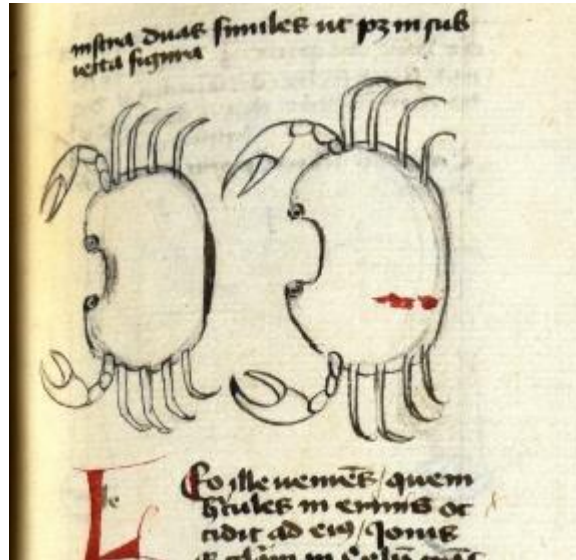 instra duas similes ut pz in sub
iecta figura
le
Eo ille nemeus / quem
hcules in ermis oc
cidit ad eius / Jonis